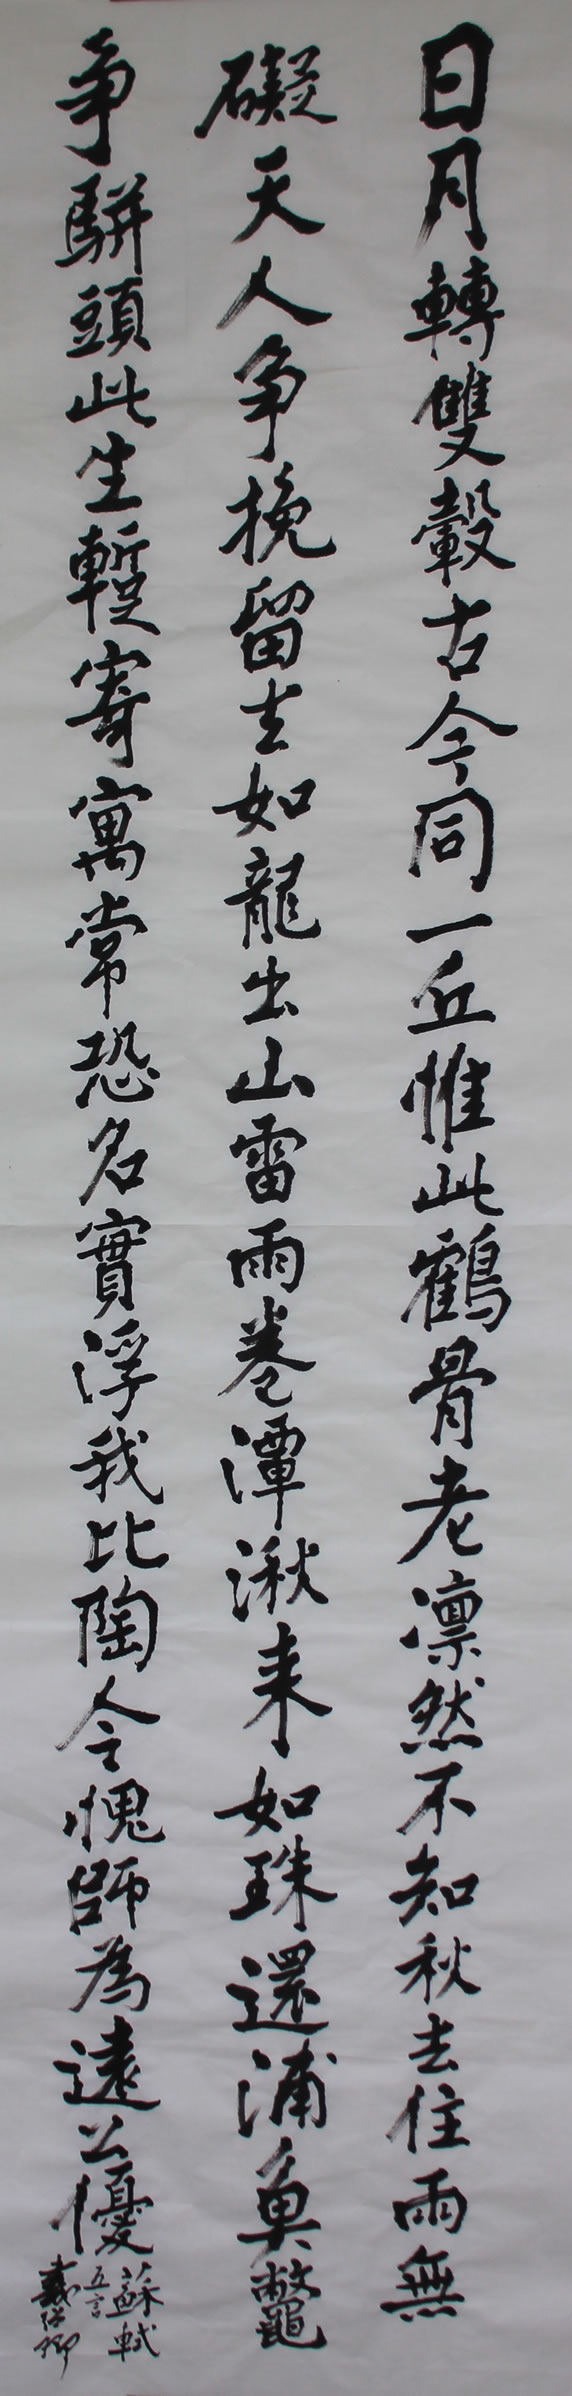 日月轉雙轂古今同一丘惟此鶴骨老凛然不知秋去住兩無
礙天人争挽留去如龍出山雷雨卷潭湫来如珠還浦魚鼈
争駢頭此生蹔寄寓常恐名實浮我比陶令愧師為遠公優
蘇軾
五言